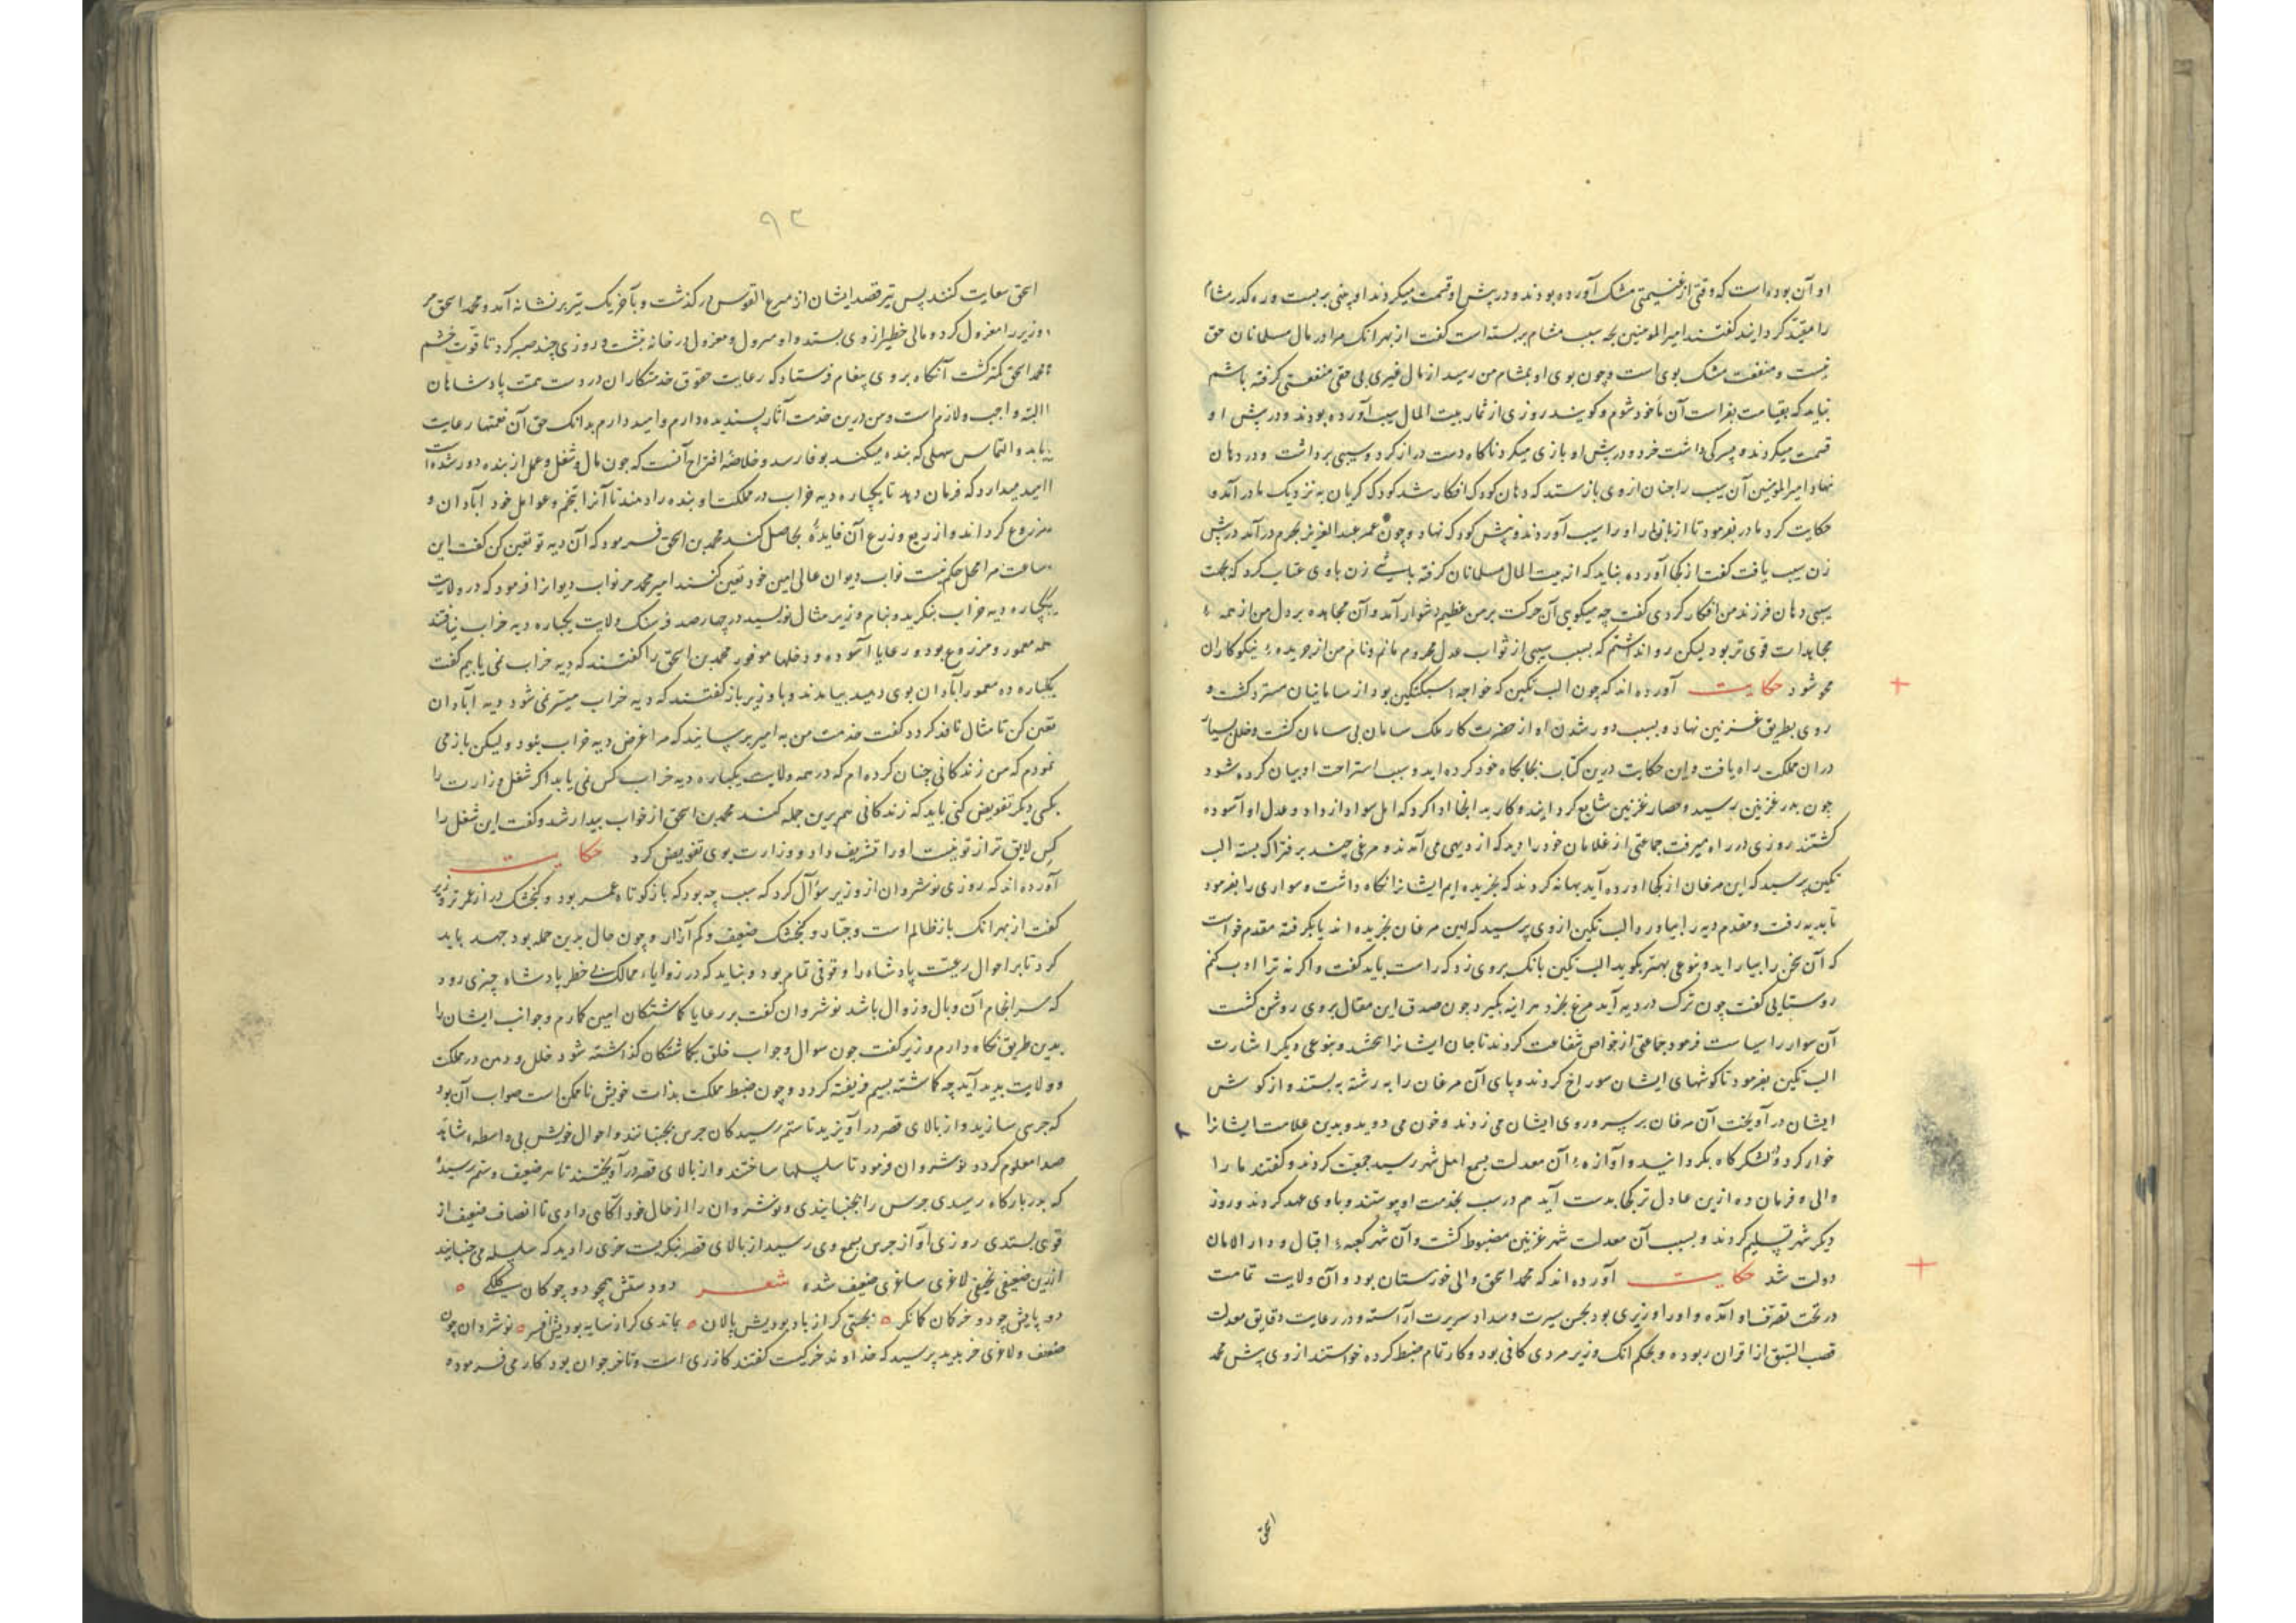 او آن بوده است که وقتی از غنیمتی مشک آورده بودند و در پیش او قسمت میکردند او بینی بربست و ره کذر مشام
را مقید کردانید کفتند امیرالمومنین بچه سبب مشام بربسته است کفت از بهر انک مرا در مال مسلمانان حق
نیست و منفعت مشک بوی است و چون بوی او بمشام من رسد از مال غیری بی حقی منفعتی کرفته باشم
نباید که بقیامت بغرامت آن مأخوذ شوم و کویند روزی از ثمار بیت المال سیب آورده بودند و در پیش او
قسمت میکردند و پسرکی داشت خرد و در پیش او بازی میکرد ناکاه دست دراز کرد و سیبی برداشت و در دهان
نهاد امیرالمومنین آن سیب را چنان از وی بازستد که دهان کودک افکار شد کودک کریان به نزدیک مادر آمد و
حکایت کرد مادر بفرمود تا از بازار او را سیب آوردند و پیش کودک نهاد و چون عمر عبدالعزیز بحرم درآمد در پیش
زن سیب یافت کفت از کجا آورده نباید که از بیت المال مسلمانان کرفته باشی زن با وی عتاب کرد که بجهت
سیبی دهان فرزند من افکار کردی کفت چه میکویی آن حرکت بر من عظیم دشوار آمد و آن مجاهده بر دل من از همه
مجاهدات قوی تر بود لیکن روا نداشتم که بسبب سیبی از ثواب عدل محروم مانم و نام من از جریده نیکوکاران
محو شود حکایت آورده اند که چون الب تکین که خواجه سبکتکین بود از سامانیان مسترد کشت و
روی بطریق غزنین نهاد و بسبب دور شدن او از حضرت کار ملک سامان بی سامان کشت و خلل بسیار
در ان مملکت راه یافت و این حکایت درین کتاب بجایکاه خود کرده اید و سبب استراحت او بیان کرده شود
چون بدر غزنین رسید و حصار غزنین شایع کردانید و کار به انجا ادا کرد که اهل سواد از داد و عدل او آسوده
کشتند روزی در راه میرفت جماعتی از غلامان خود را دید که از دیهی می آمدند و مرغی چند بر فتراک بسته الب
تکین پرسید که این مرغان از کجا اورده آید بهانه کردند که بخریده ایم ایشانرا نکاه داشت و سواری را بفرمود
تا بدیه رفت و مقدم دیه را بیاورد الب تکین از وی پرسید که این مرغان بخریده اند یا بکرفته مقدم خواست
که آن سخن را بیاراید و بنوعی بهتر بکوید الب تکین بانک بر وی زد که راست باید کفت و اکر نه ترا ادب کنم
روستایی کفت چون ترک در دیه آید مرغ بخرد هراینه بکیرد چون صدق این مقال بر وی روشن کشت
آن سوار را سیاست فرمود جماعتی از خواص شفاعت کردند تا جان ایشانرا ببخشد و بنوعی دیکر اشارت
الب تکین بفرمود تا کوشهای ایشان سوراخ کردند و پای آن مرغان را به رشته به بستند و از کوش
ایشان درآویخت آن مرغان بر سر و روی ایشان می زدند و خون می دوید و بدین علامت ایشانرا
خوار کرد و در لشکرکاه بکردانید و آوازه آن معدلت بسمع اهل شهر رسید جمعیت کردند و کفتند ما را
والی و فرمان ده ازین عادل تر کجا بدست آید هم در شب بخدمت او پیوستند و با وی عهد کردند و روز
دیکر شهر تسلیم کردند و بسبب آن معدلت شهر غزنین مضبوط کشت و آن شهر کعبه اقبال و دار الامان
دولت شد حکایت آورده اند که محمد اسحق والی خورستان بود و آن ولایت تمامت
در تحت تصرف او آمده و او را وزیری بود بحسن سیرت و سداد سریرت آراسته و در رعایت دقایق معدلت
قصب السبق از اقران ربوده و بحکم انک وزیر مردی کافی بود و کار تمام ضبط کرده خواستند از وی پیش محمد
اسحق
۹۳
اسحق سعایت کنند پس تیر قصد ایشان از مرع القوس درکذشت و بآخر یک تیر بر نشانه آمد و محمد اسحق مر
وزیر را معزول کرد و مالی خطیر از وی بستد و او معزول در خانه نشست و روزی چند صبر کرد تا قوت خشم
محمد اسحق کمتر کشت آنکاه بر وی پیغام فرستاد که رعایت حقوق خدمتکاران در دست همت پادشاهان
البته واجب و لازم است و من درین خدمت آثار پسندیده دارم و امید دارم بدانک حق آن نعمتها رعایت
یابد و التماس سهلی که بنده میکند بوفا رسد و خلاصه اقتراح آنست که چون مال و شغل و عمل از بنده دور شده است
امید میدارد که فرمان دهد تا یکپاره دیه خراب در مملکت او بنده را دهند تا آنرا بتخم و عوامل خود آبادان و
مزروع کرداند و از ریع و زرع آن فایده بحاصل کند محمد بن اسحق فرمود که آن دیه تو تعین کن کفت این
ساعت مرا محل حکم نیست نواب دیوان عالی امین خود تعین کنند امیر محمد مر نواب دیوانرا فرمود که در ولایت
یکپاره دیه خراب بنکرید و بنام وزیر مثال نویسید در چهار صد فرسنک ولایت یکپاره دیه خراب نیافتند
همه معمور و مزروع بود و رعایا آسوده و دخلها موفور محمد بن اسحق را کفتند که دیه خراب نمی یابیم کفت
یکپاره ده معمور آبادان بوی دهید بیامدند و با وزیر باز کفتند که دیه خراب میسر نمی شود دیه آبادان
تعین کن تا مثال نافذ کردد کفت خدمت من به امیر برسانید که مرا غرض دیه خراب نبود و لیکن باز می
نمودم که من زندکانی چنان کرده ام که در همه ولایت یکپاره دیه خراب کس نمی یابد اکر شغل وزارت را
بکسی دیکر تفویض کنی باید که زندکانی هم برین جمله کند محمد بن اسحق از خواب بیدار شد و کفت این شغل را
کس لایق تر از تو نیست او را تشریف داد و وزارت بوی تفویض کرد حکایت
آورده اند که روزی نوشروان از وزیر سؤال کرد که سبب چه بود که باز کوتاه عمر بود و کنجشک دراز عمرتر وزیر
کفت از بهر انک باز ظالم است و جبار و کنجشک ضعیف و کم آزار و چون حال بدین جمله بود جهد باید
کرد تا بر احوال رعیت پادشاه را وقوفی تمام بود و نباید که در زوایاء ممالک بی خطر پادشاه چیزی رود
که سرانجام آن وبال و زوال باشد نوشروان کفت بر رعایا کماشتکان امین کارم و جوانب ایشان را
بدین طریق نکاه دارم وزیر کفت چون سوال و جواب خلق بکماشتکان کذاشته شود خلل و وهن در مملکت
و ولایت پدید آید چه کماشته بسیم فریفته کردد و چون ضبط مملکت بذات خویش ناممکن است صواب آن بود
که جرسی سازید و از بالای قصر درآویزید تا ستم رسیدکان جرس بجنبانند و احوال خویش بی واسطه
معلوم کردد نوشروان فرمود تا سلسلها ساختند و از بالای قصر درآویختند تا هر ضعیف و ستم رسیده
که بدر بارکاه رسیدی جرس را بجنبانیدی و نوشروان را از حال خود آکاهی دادی تا انصاف ضعیف از
قوی بستدی روزی آواز جرس بسمع وی رسید از بالای قصر بنکریست خری را دید که سلسله می جنبانید
ازین ضعیفی نحیفی لاغری ساغری ضعیف شده شعر دو دستش همچو دو چوکان
دو پایش چو دو خرکان کمانکر بجستی کر از باد بودیش پالان بماندی کر از سایه بودیش افسر نوشروان چون
ضعف و لاغری خر بدید پرسید که خداوند خر کیست کفتند کازری است و تا خر جوان بود کار می فرموده